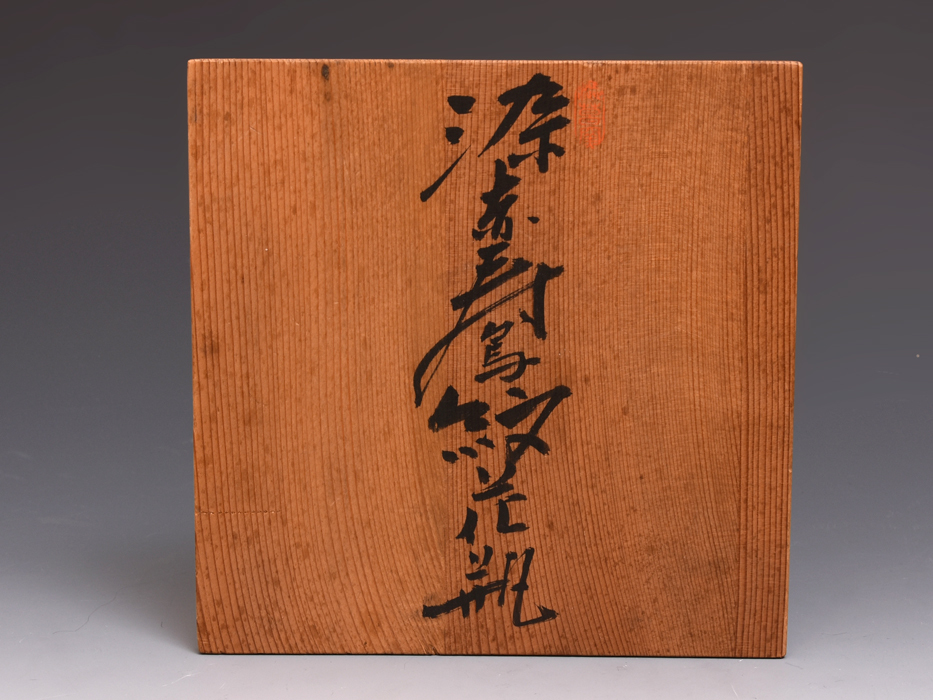 染赤寿鳥紋花瓶